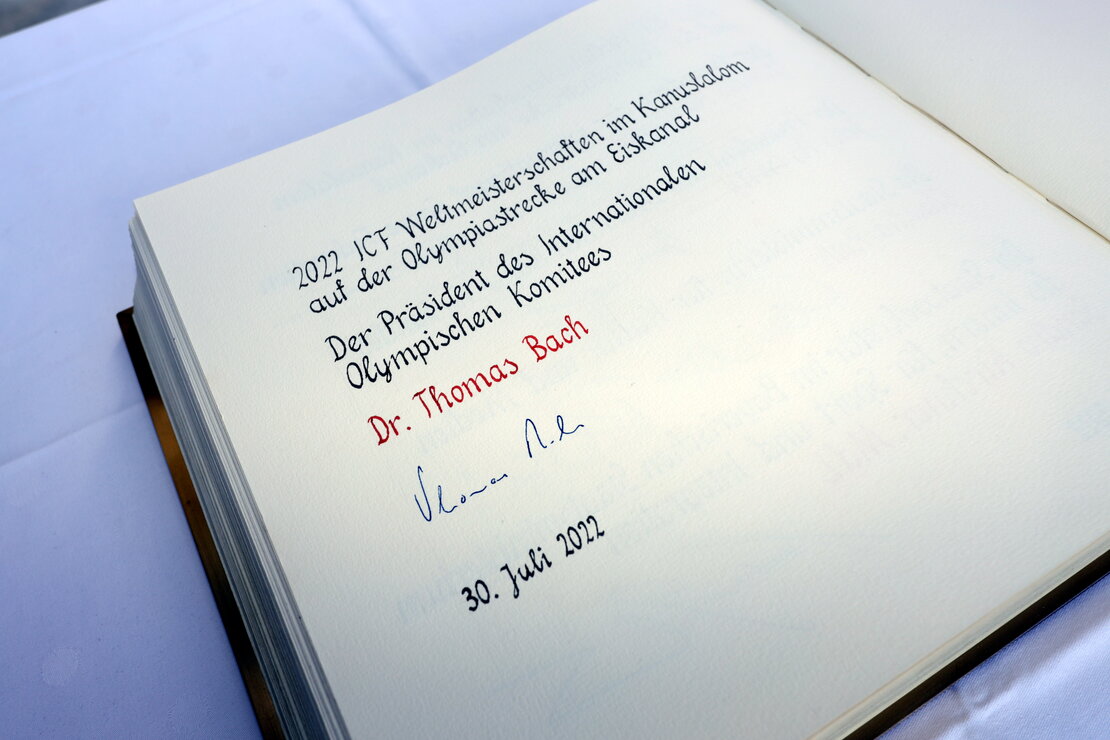 2022 ICF Weltmeisterschaften im Kanuslalom
auf der Olympiastrecke am Eiskanal
Der Präsident des Internationalen
Olympischen Komitees
Dr. Thomas Bach
Thomas Bach
30. Juli 2022